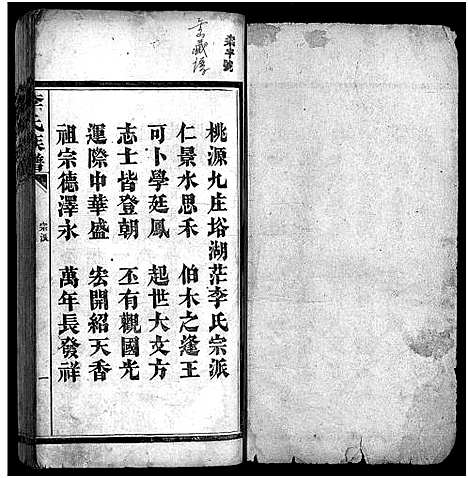 桃源九庄塔湖茫李氏宗派
仁景水思禾 伯木之逢王
可卜學廷鳳 起世大文方
志士皆登朝 丕有觀國光
運際中華盛 宏開紹天香
祖宗德澤永 萬年長發祥
李氏族譜
宗派
一